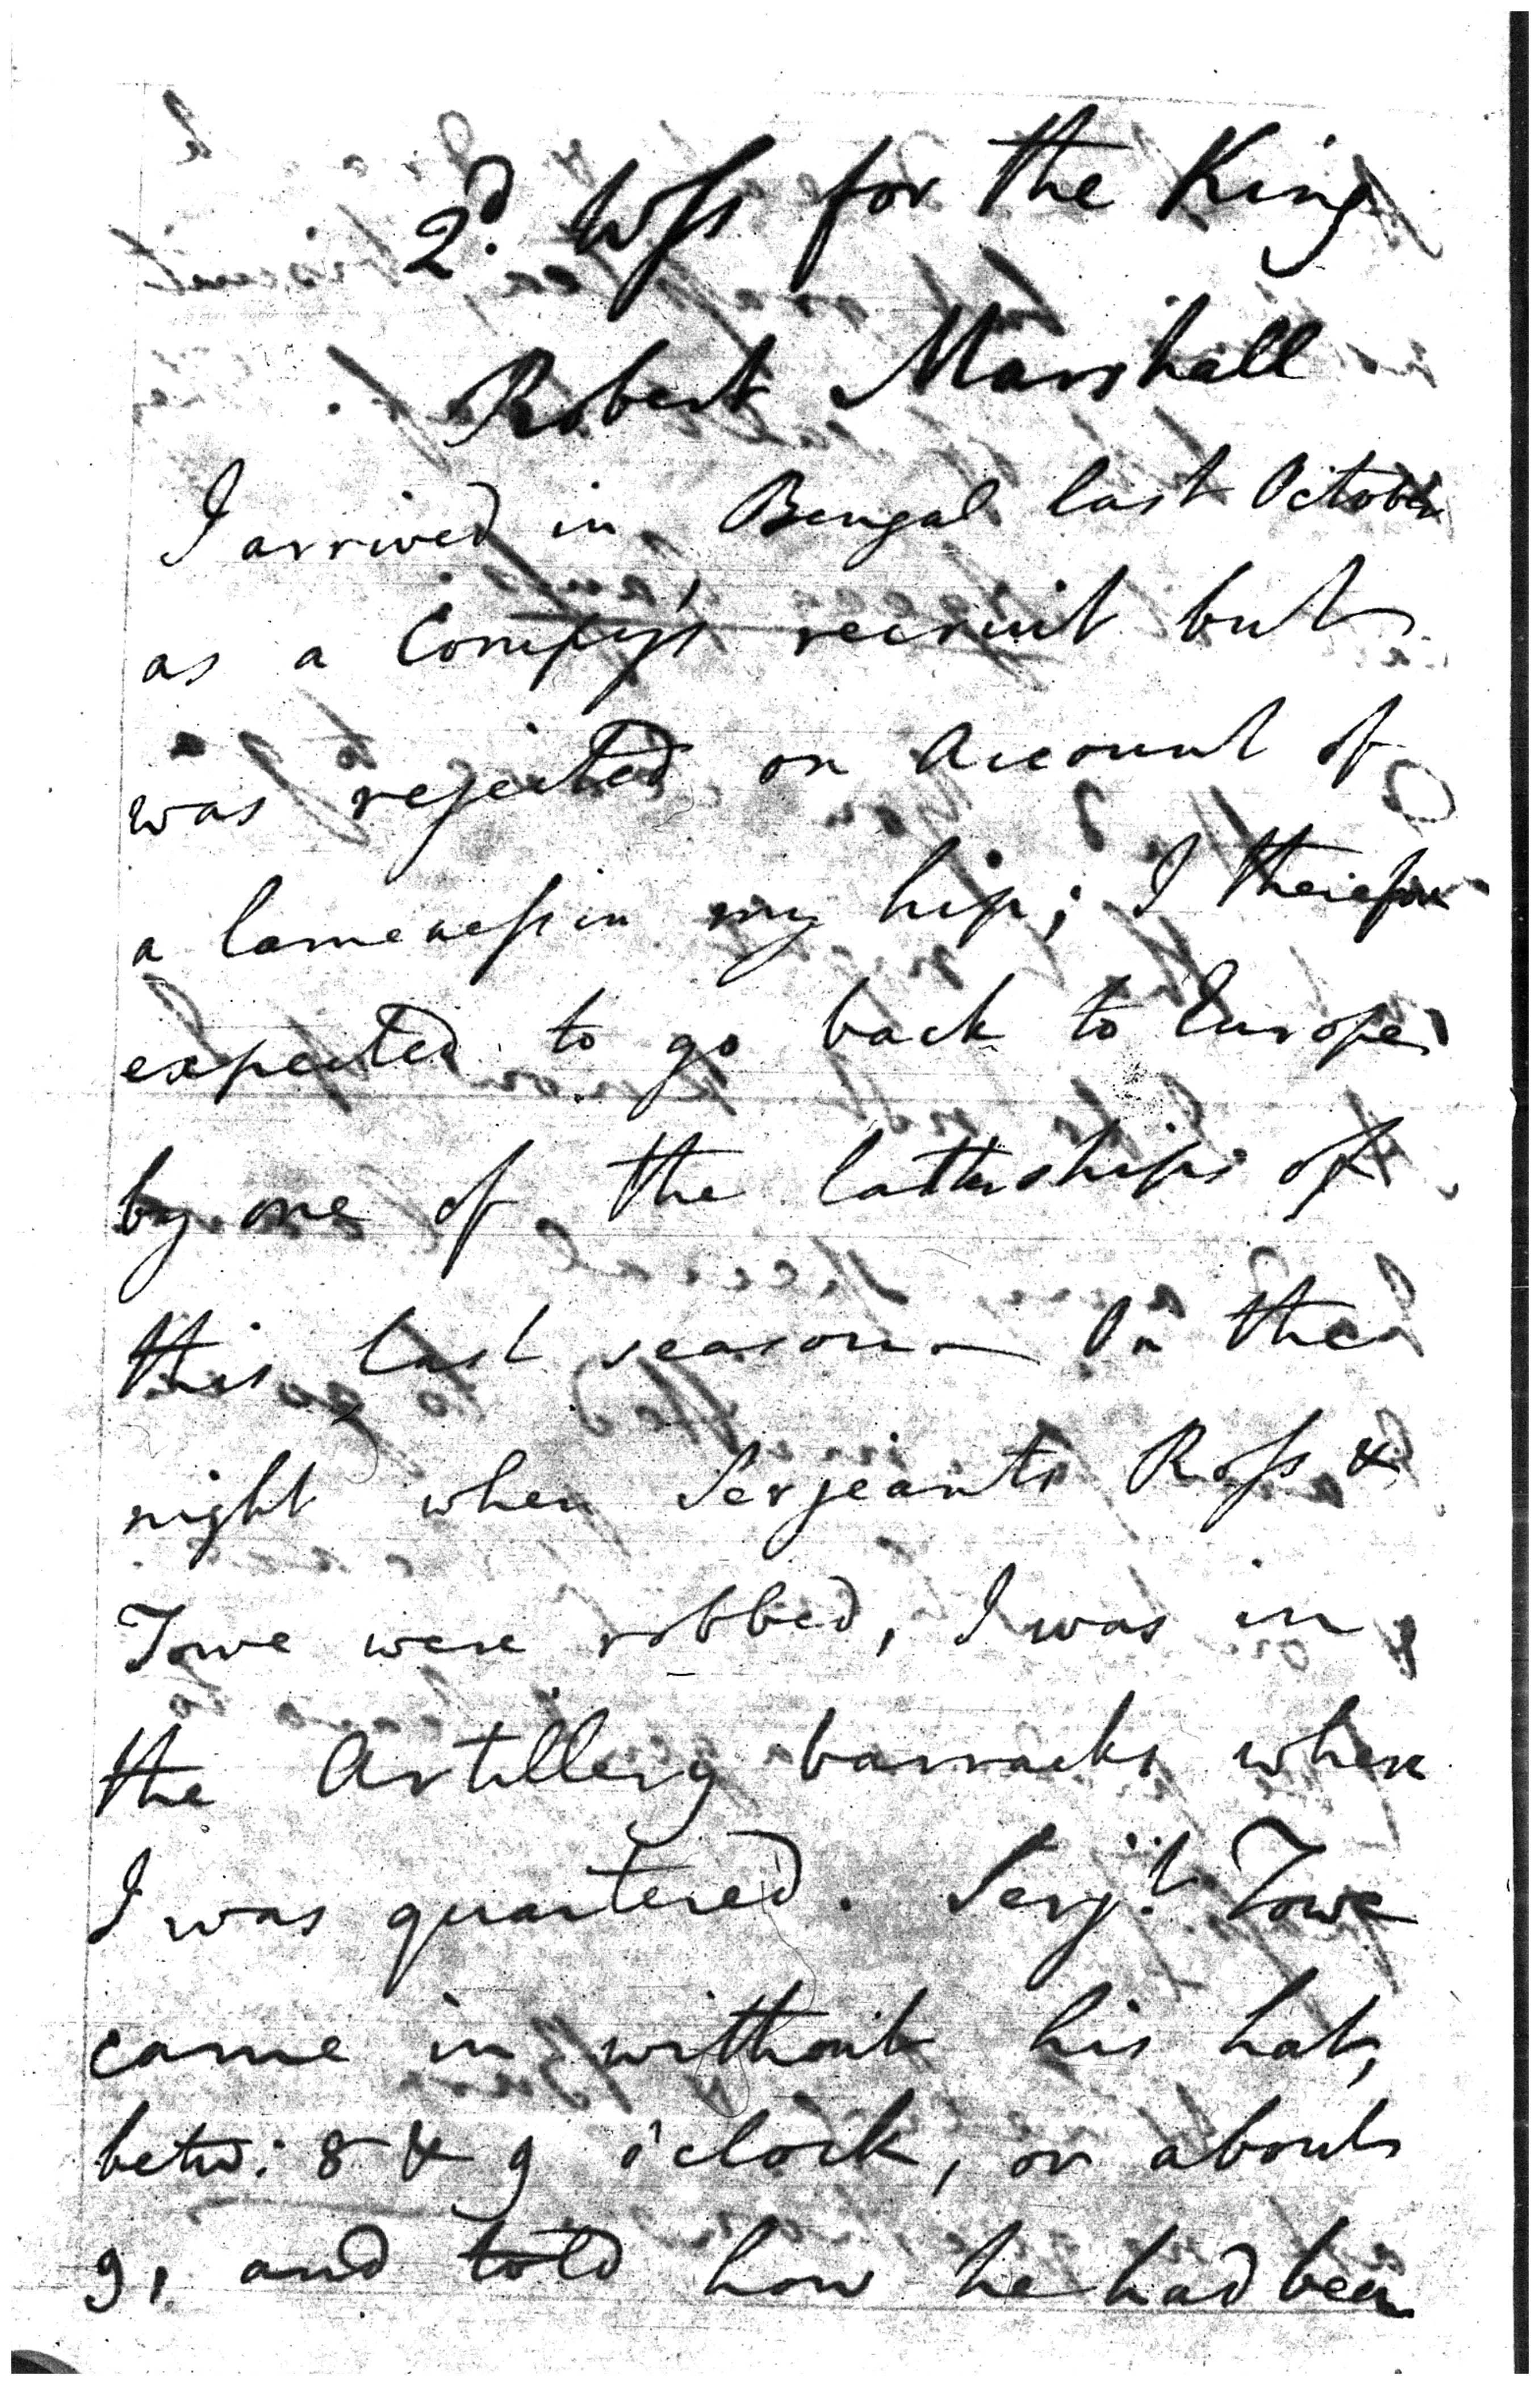 2d. Wss for the King
Robert Marshall
I arrived in Bengal last October
as a Compy's recruit but
was rejected on Account of
a lameness in my hip; I therefore
expected to go back to Europe
by one of the latter ships of
this last season — On the
night when Serjeants Ross &
Towe were robbed, I was in
the Artillery barracks where
I was quartered. Serjt. Towe
came in without his hat,
betw: 8 & 9 o'clock, or about
9, and told how he had been